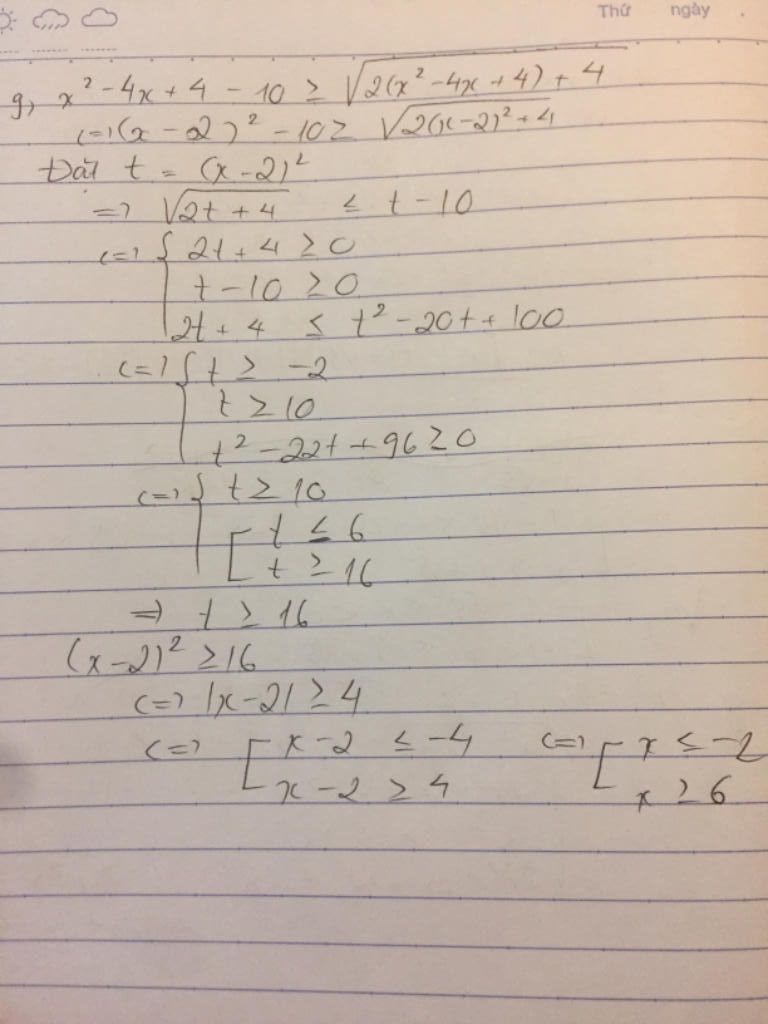 Thứ ngày .
g, x² - 4x + 4 - 10 ≥ √(2(x² - 4x + 4) + 4)
<=> (x - 2)² - 10 ≥ √(2(x-2)² + 4)
Đặt t = (x - 2)²
=> √(2t + 4) ≤ t - 10
<=> { 2t + 4 ≥ 0
t - 10 ≥ 0
2t + 4 ≤ t² - 20t + 100
<=> { t ≥ -2
t ≥ 10
t² - 22t + 96 ≥ 0
<=> { t ≥ 10
[ t ≤ 6
t ≥ 16
=> t ≥ 16
(x - 2)² ≥ 16
<=> |x - 2| ≥ 4
<=> [ x - 2 ≤ -4 <=> [ x ≤ -2
x - 2 ≥ 4 x ≥ 6